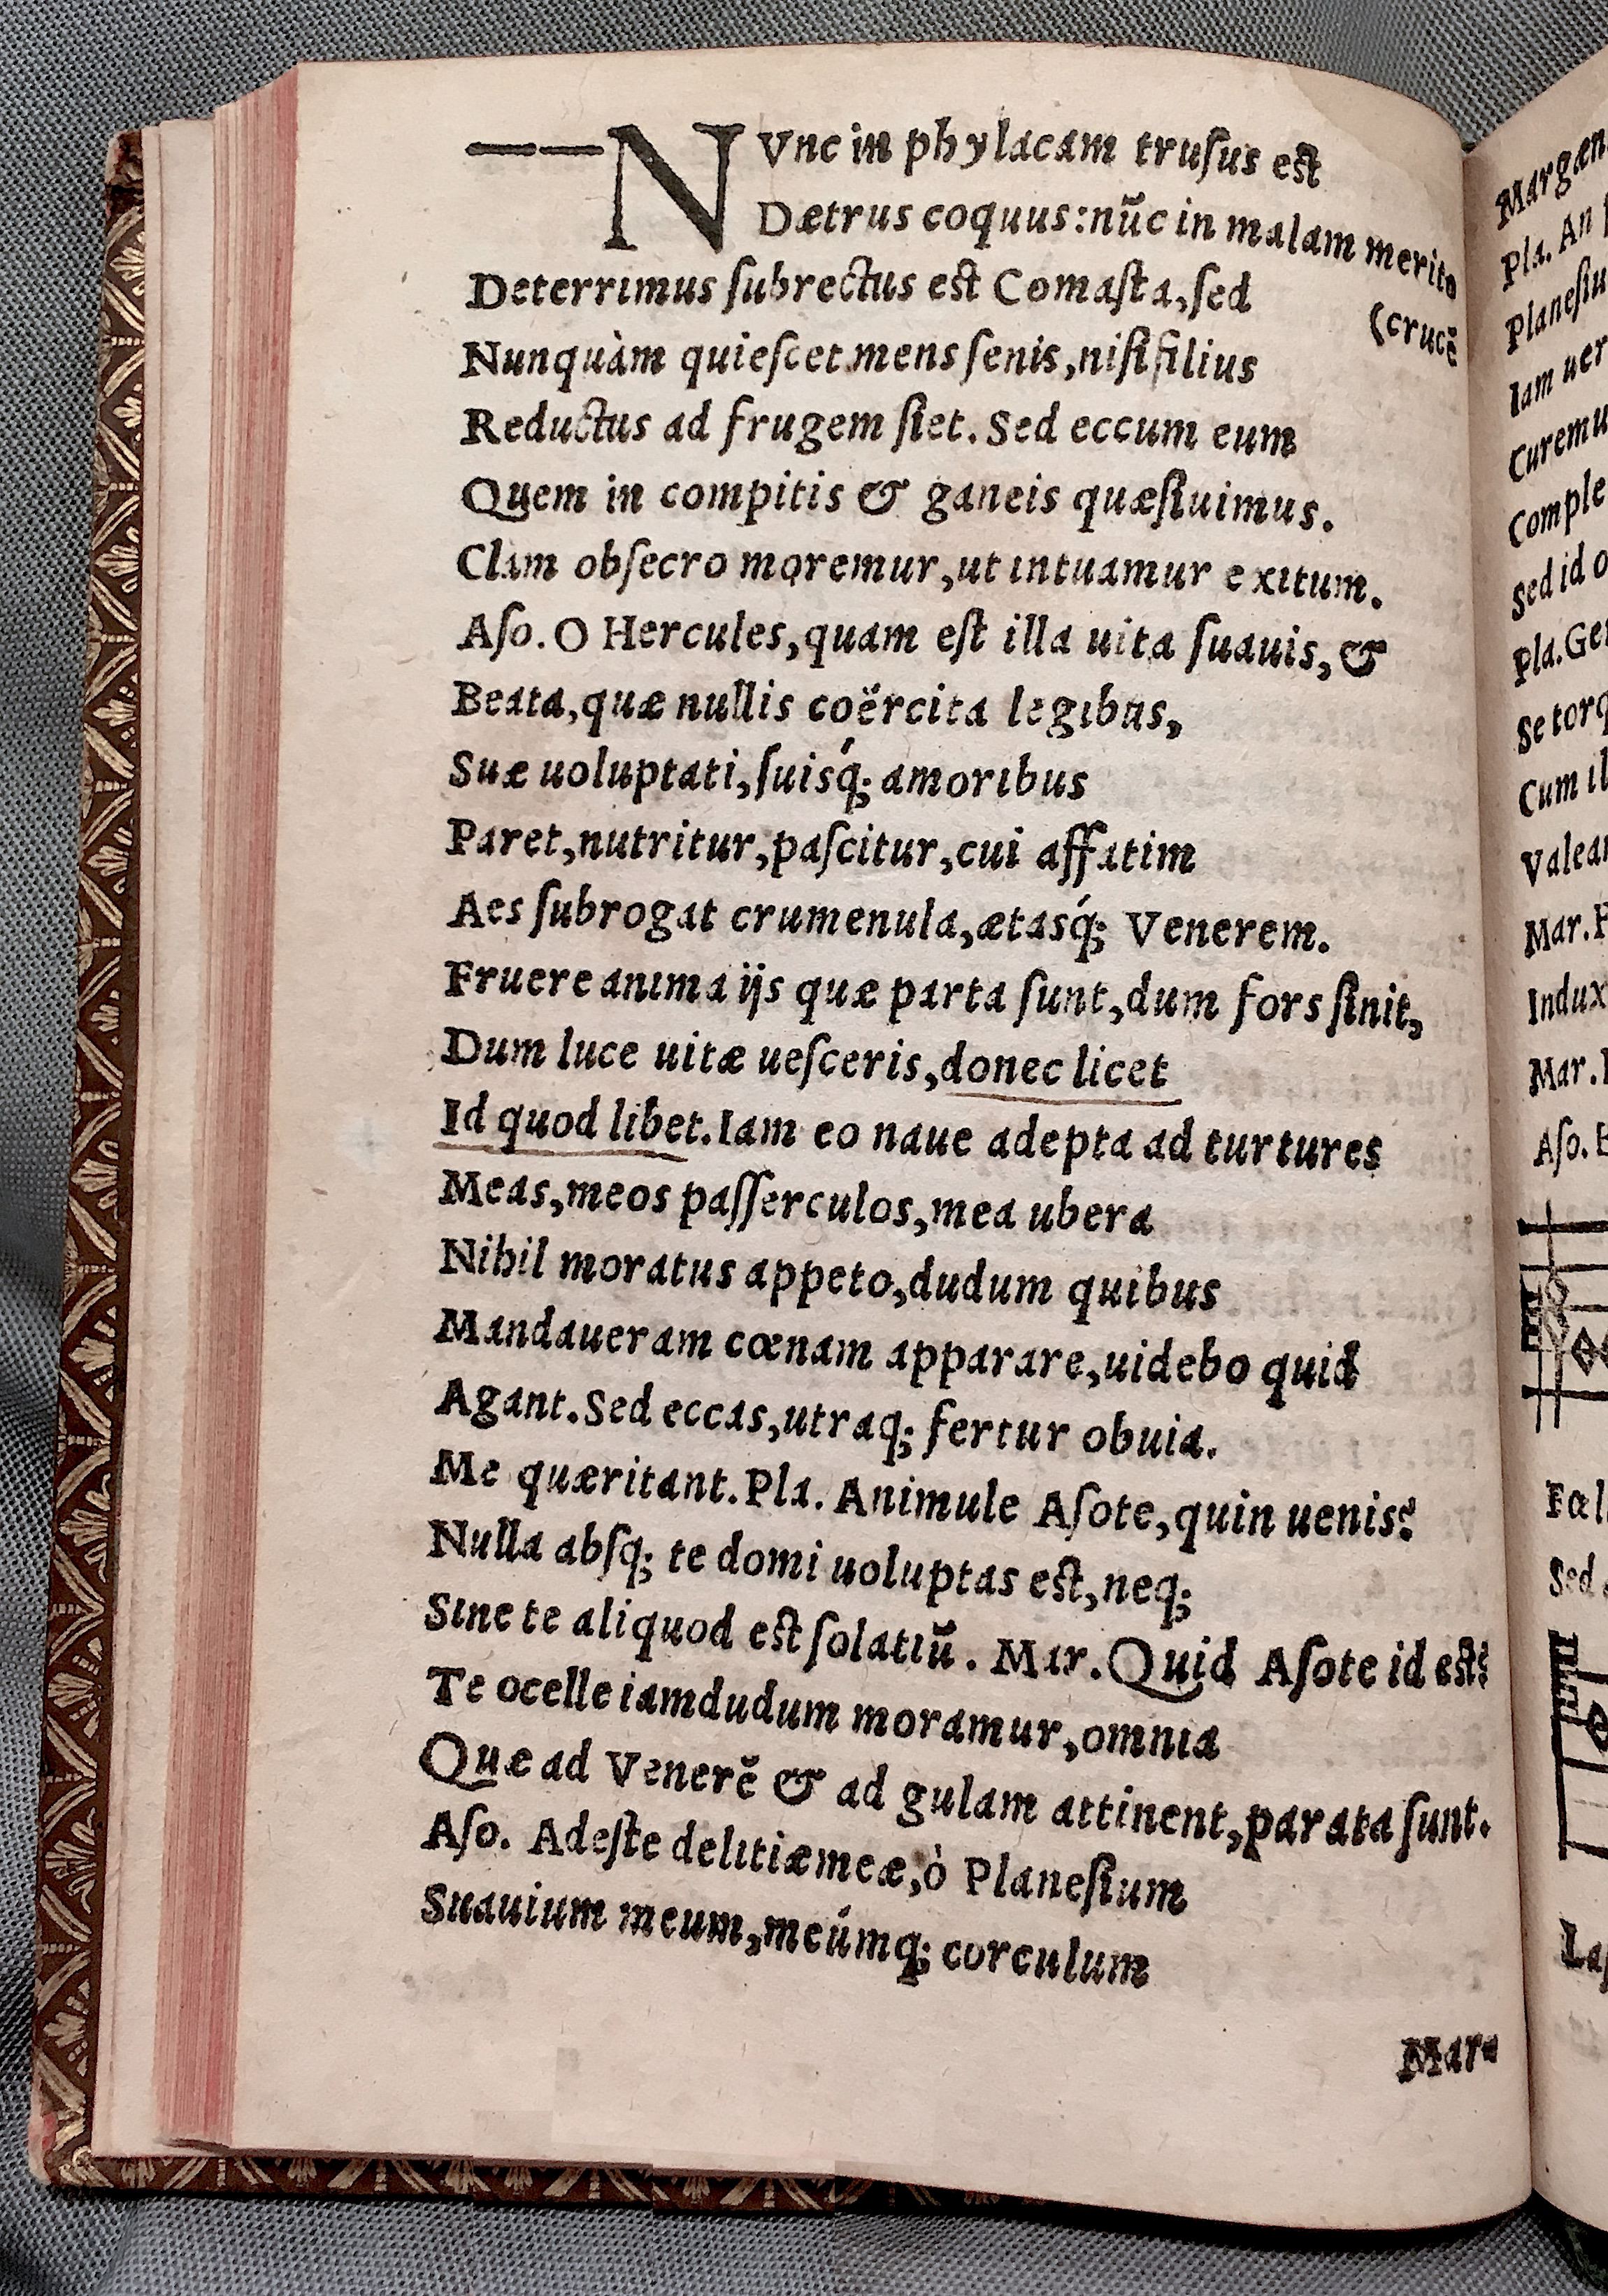 ——NVnc in phylacam truſus eſt
Dætrus coquus: nūc in malam merito
(crucē
Deterrimus ſubrectus eſt Comaſta, ſed
Nunquàm quieſcet mens ſenis, niſi filius
Reductus ad frugem ſiet. Sed eccum eum
Quem in compitis & ganeis quæſiuimus.
Clam obſecro moremur, ut intuamur exitum.
Aſo. O Hercules, quam eſt illa uita ſuauis, &
Beata, quæ nullis coërcita legibus,
Suæ uoluptati, ſuisq́; amoribus
Paret, nutritur, paſcitur, cui affatim
Aes ſubrogat crumenula, ætasq́; Venerem.
Fruere anima ijs quæ parta ſunt, dum fors ſinit,
Dum luce uitæ ueſceris, donec licet
Id quod libet. Iam eo naue adepta ad turtures
Meas, meos paſſerculos, mea ubera
Nihil moratus appeto, dudum quibus
Mandaueram cœnam apparare, uidebo quid
Agant. Sed eccas, utraq; fertur obuia.
Me quæritant. Pla. Animule Aſote, quin uenis?
Nulla abſq; te domi uoluptas eſt, neq;
Sine te aliquod eſt ſolatiū. Mar. Quid Aſote id eſt?
Te ocelle iamdudum moramur, omnia
Quæ ad Venerē & ad gulam attinent, parata ſunt.
Aſo. Adeſte delitiæ meæ, ò Planeſium
Suauium meum, meúmq; corculum
Mar
Margæn
Pla. An
Planeſiu
Iam uer
Curemu
Comple
Sed id o
Pla. Ger
Se torq
Cum il
Valear
Mar.
Indux
Mar.
Aſo.
Fœl
Sed
Laſ